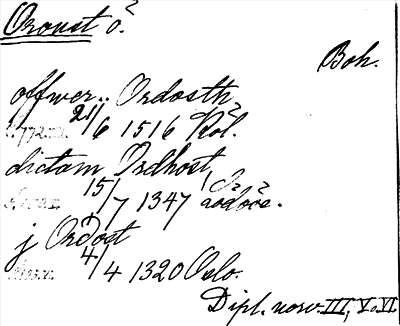 Oroust ö.
Boh.
offwer.. Ordosth
21/6 1516 Köl.
dictam Ordhost
15/7 1347
j Ordost
4/4 1320 Oslo.
Dipl. norv. III, V. VI